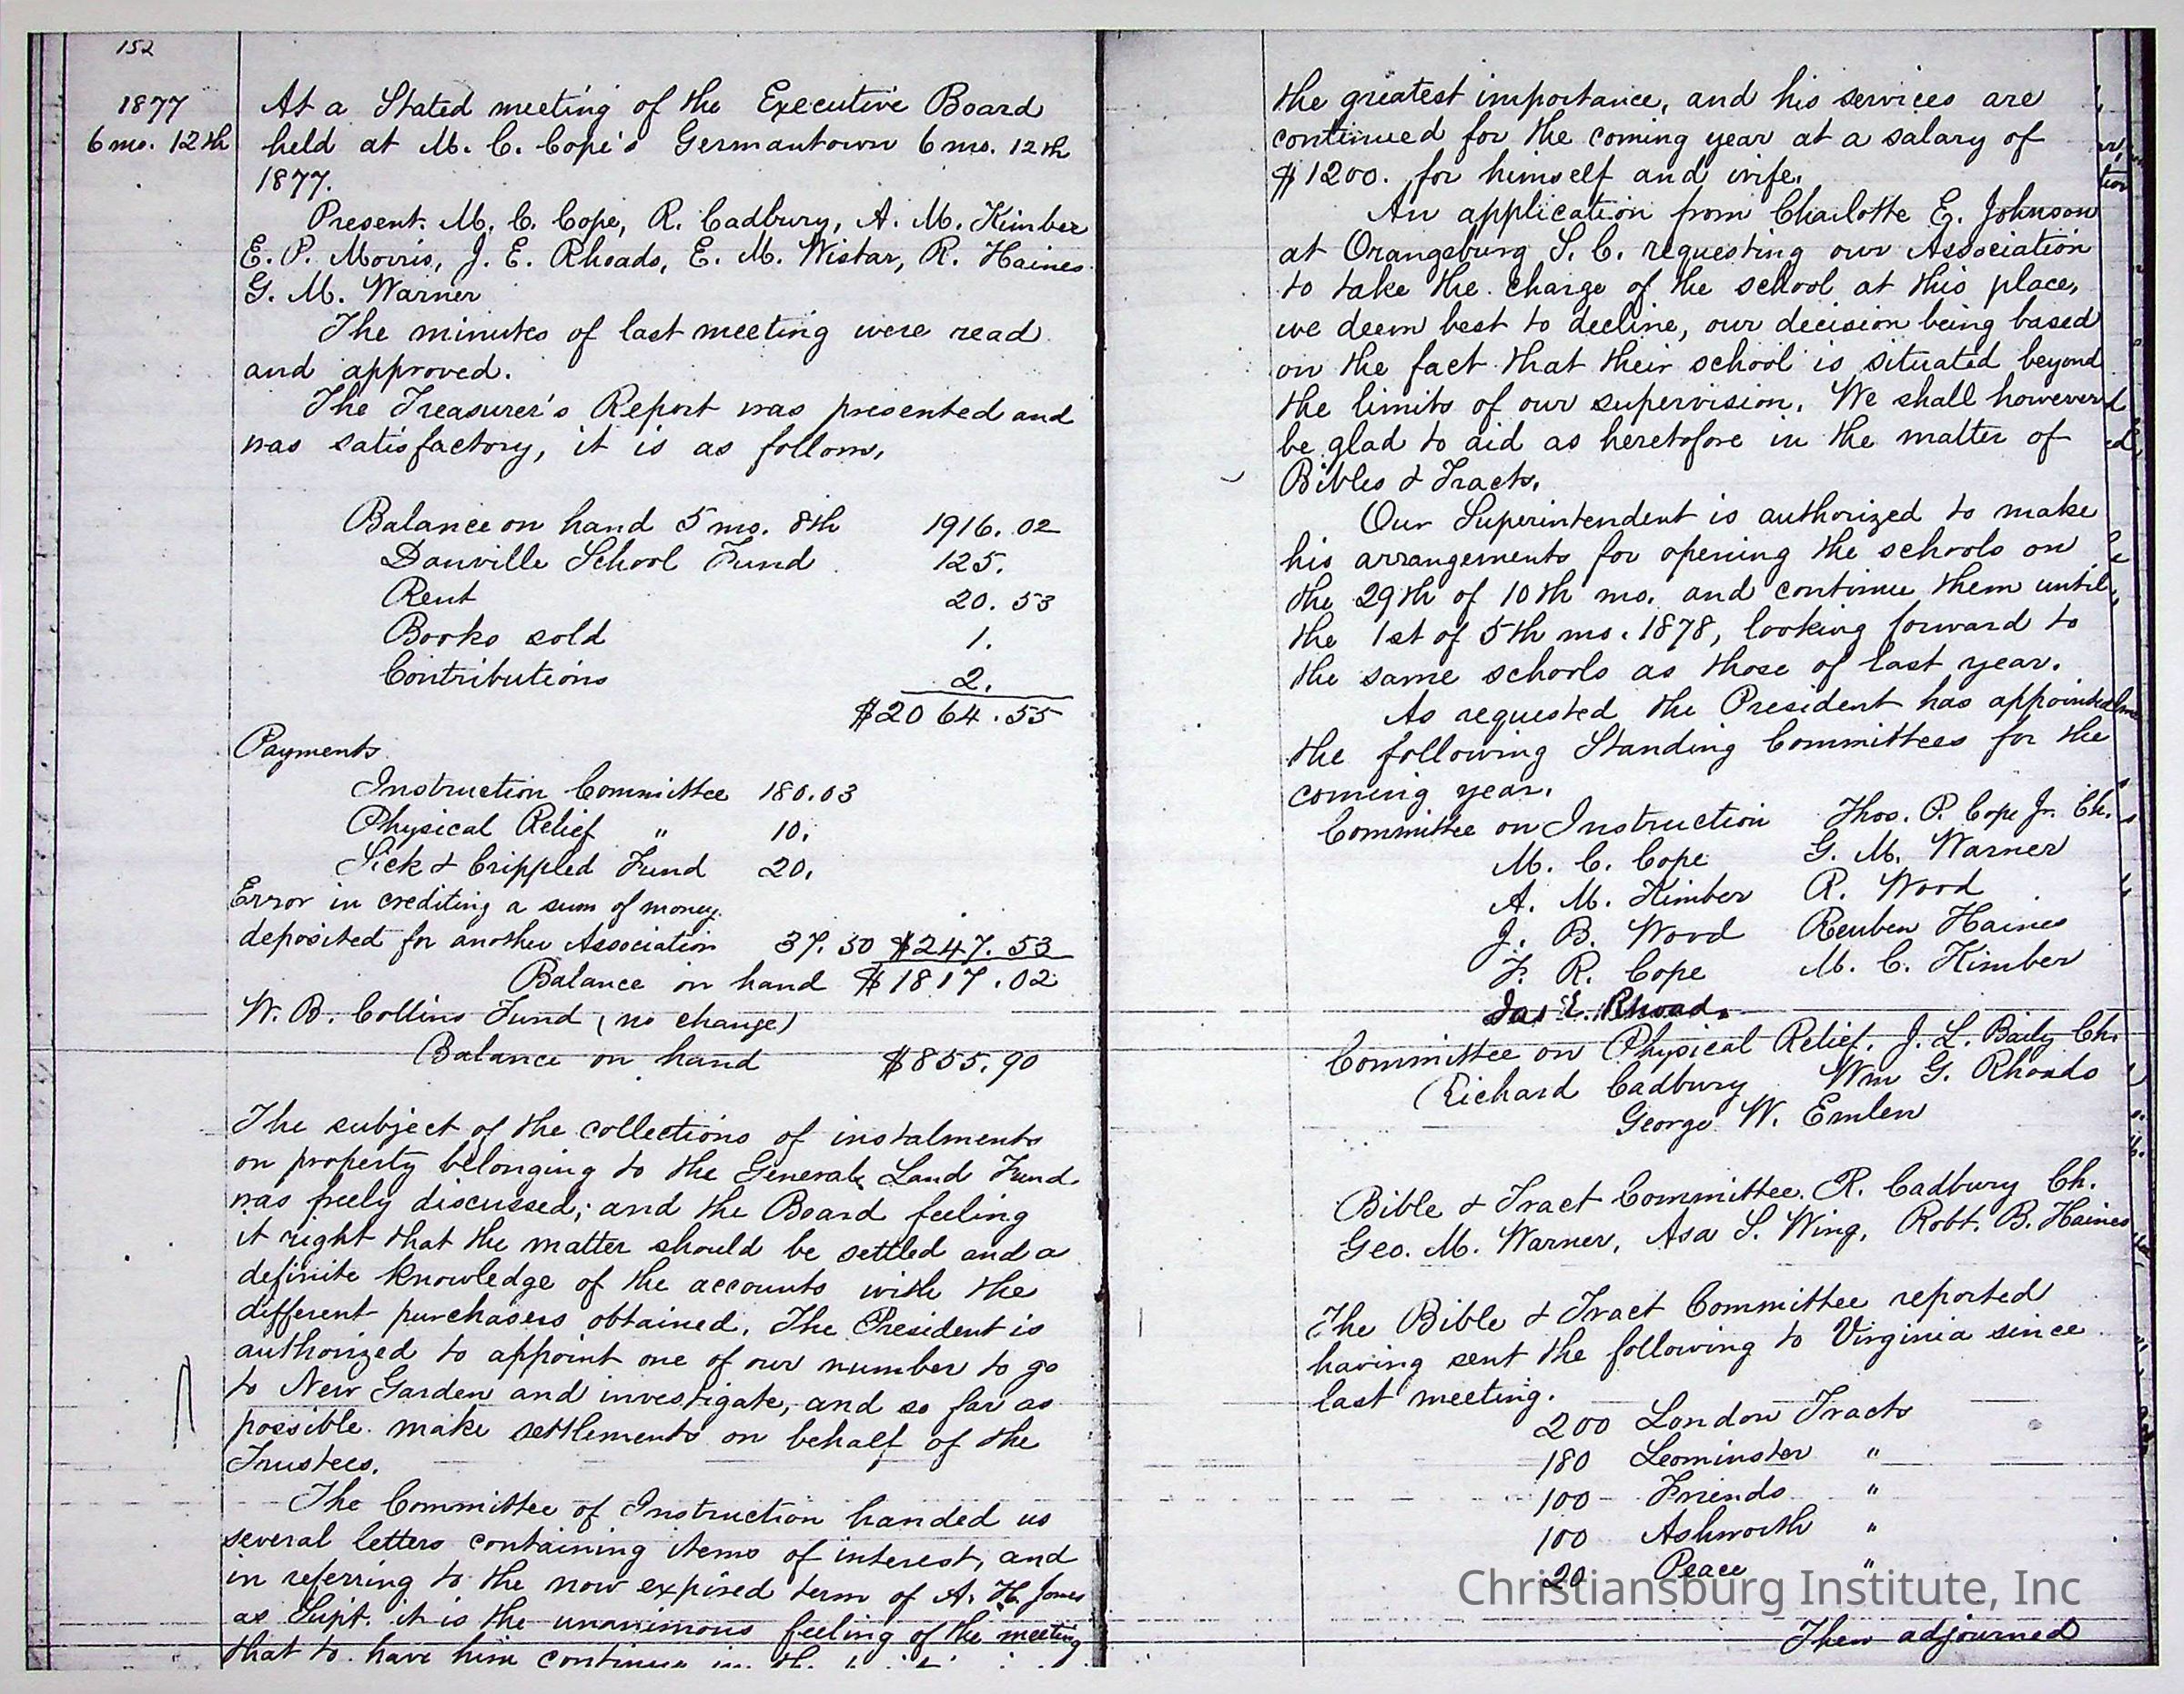 152
1877
6 mo. 12th
At a Stated meeting of the Executive Board
held at M. C. Cope's Germantown 6 mo. 12th
1877.
Present. M. C. Cope, R. Cadbury, A. M. Kimber
E. P. Morris, J. E. Rhoads, E. M. Wistar, R. Haines
G. M. Warner
The minutes of last meeting were read
and approved.
The Treasurer's Report was presented and
was satisfactory, it is as follows,
Balance on hand 5 mo. 8th 1916.02
Danville School Fund 125.
Rent 20.53
Books sold 1.
Contributions 2.
$2064.55
Payments
Instruction Committee 180.03
Physical Relief " 10.
Sick & Crippled Fund 20.
Error in crediting a sum of money
deposited for another Association 37.50 $247.53
Balance on hand $1817.02
W. B. Collins Fund (no change)
Balance on hand $855.90
The subject of the collections of instalments
on property belonging to the General Land Fund
was freely discussed; and the Board feeling
it right that the matter should be settled and a
definite knowledge of the accounts with the
different purchasers obtained. The President is
authorized to appoint one of our number to go
to New Garden and investigate, and so far as
possible make settlements on behalf of the
Trustees.
The Committee of Instruction handed us
several letters containing items of interest, and
in referring to the now expired term of A. H. Jones
as Supt. it is the unanimous feeling of the meeting
that to have him continue in
the greatest importance, and his services are
continued for the coming year at a salary of
$1200. for himself and wife.
An application from Charlotte E. Johnson
at Orangeburg S. C. requesting our Association
to take the charge of the school at this place,
we deem best to decline, our decision being based
on the fact that their school is situated beyond
the limits of our supervision. We shall however
be glad to aid as heretofore in the matter of
Bibles & Tracts.
Our Superintendent is authorized to make
his arrangements for opening the schools on
the 29th of 10th mo. and continue them until
the 1st of 5th mo. 1878, looking forward to
the same schools as those of last year.
As requested the President has appointed
the following Standing Committees for the
coming year.
Committee on Instruction Thos. P. Cope Jr. Ch.
M. C. Cope G. M. Warner
A. M. Kimber R. Wood
J. B. Wood Reuben Haines
F. R. Cope M. C. Kimber
Jas E. Rhoads
Committee on Physical Relief. J. L. Baily Ch.
Richard Cadbury Wm G. Rhoads
George W. Emlen
Bible & Tract Committee. R. Cadbury Ch.
Geo. M. Warner, Asa S. Wing, Robt. B. Haines
The Bible & Tract Committee reported
having sent the following to Virginia since
last meeting.
200 London Tracts
180 Leominster "
100 Friends "
100 Ashworth "
20 Peace "
Christiansburg Institute, Inc
Then adjourned